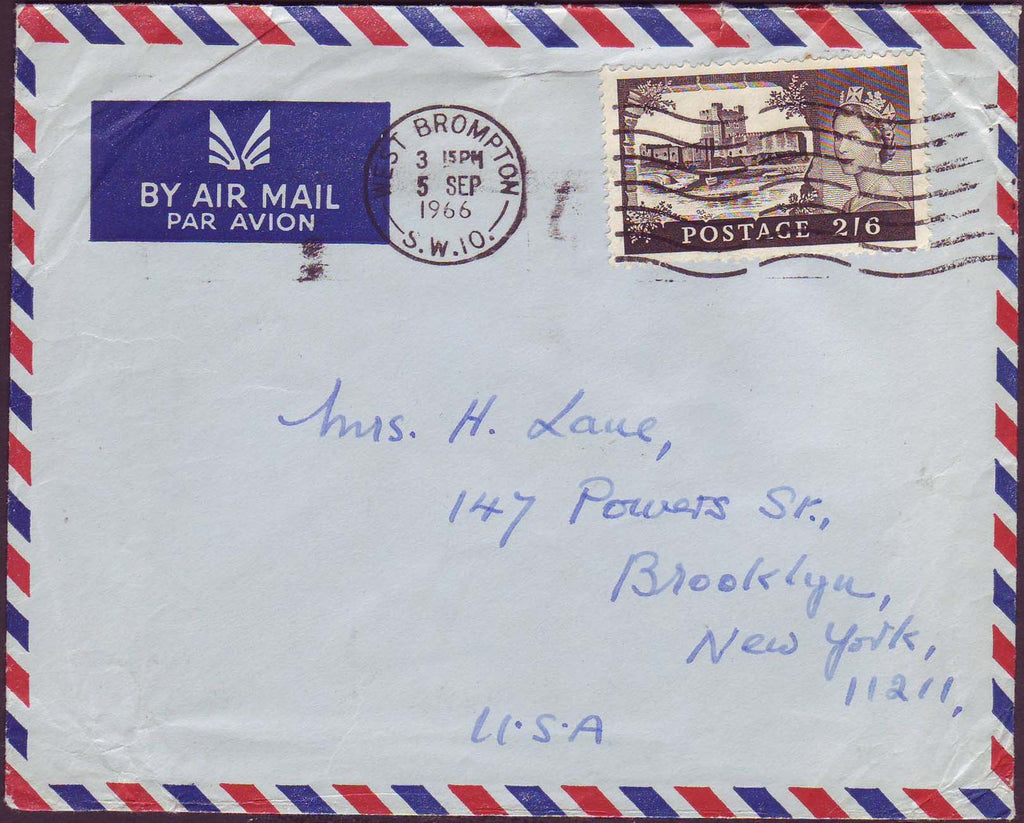 BY AIR MAIL
PAR AVION
WEST BROMPTON
3 15PM
5 SEP
1966
S.W.10.
POSTAGE 2/6
Mrs. H. Lane,
147 Powers St.,
Brooklyn,
New York,
11211,
U.S.A